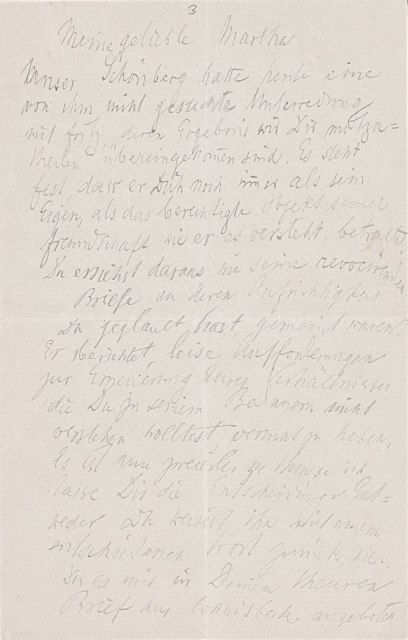 3
Meine geliebte Martha
Unser Schönberg hatte heute eine
von ihm nicht gesuchte Unterredung
mit Fritz, deren Ergebnis wir Dir mitzu=
theilen übereingekommen sind. Es steht
fest dass er Dich noch immer als sein
Eigen, als das berechtigte Objekt seiner
Freundschaft wie er es versteht, betrachtet
Du ersiehst daraus wie seine
Briefe an deren Aufrichtigkeit
Du geglaubt hast, gemeint waren.
Er berichtet, leise Aufforderungen
zur Erneuerung Verhältnisses
die Du zu seinem Bedauern nicht
verstehen wolltest, zu haben.
Es ist nun zu thun
lasse Dir die Entscheidung Ent=
weder Du weisest ihn mit einem
entschiedenen Wort zurück, wie
Du es mir in Deinem theuren
Brief aus Wandsbeck angeboten